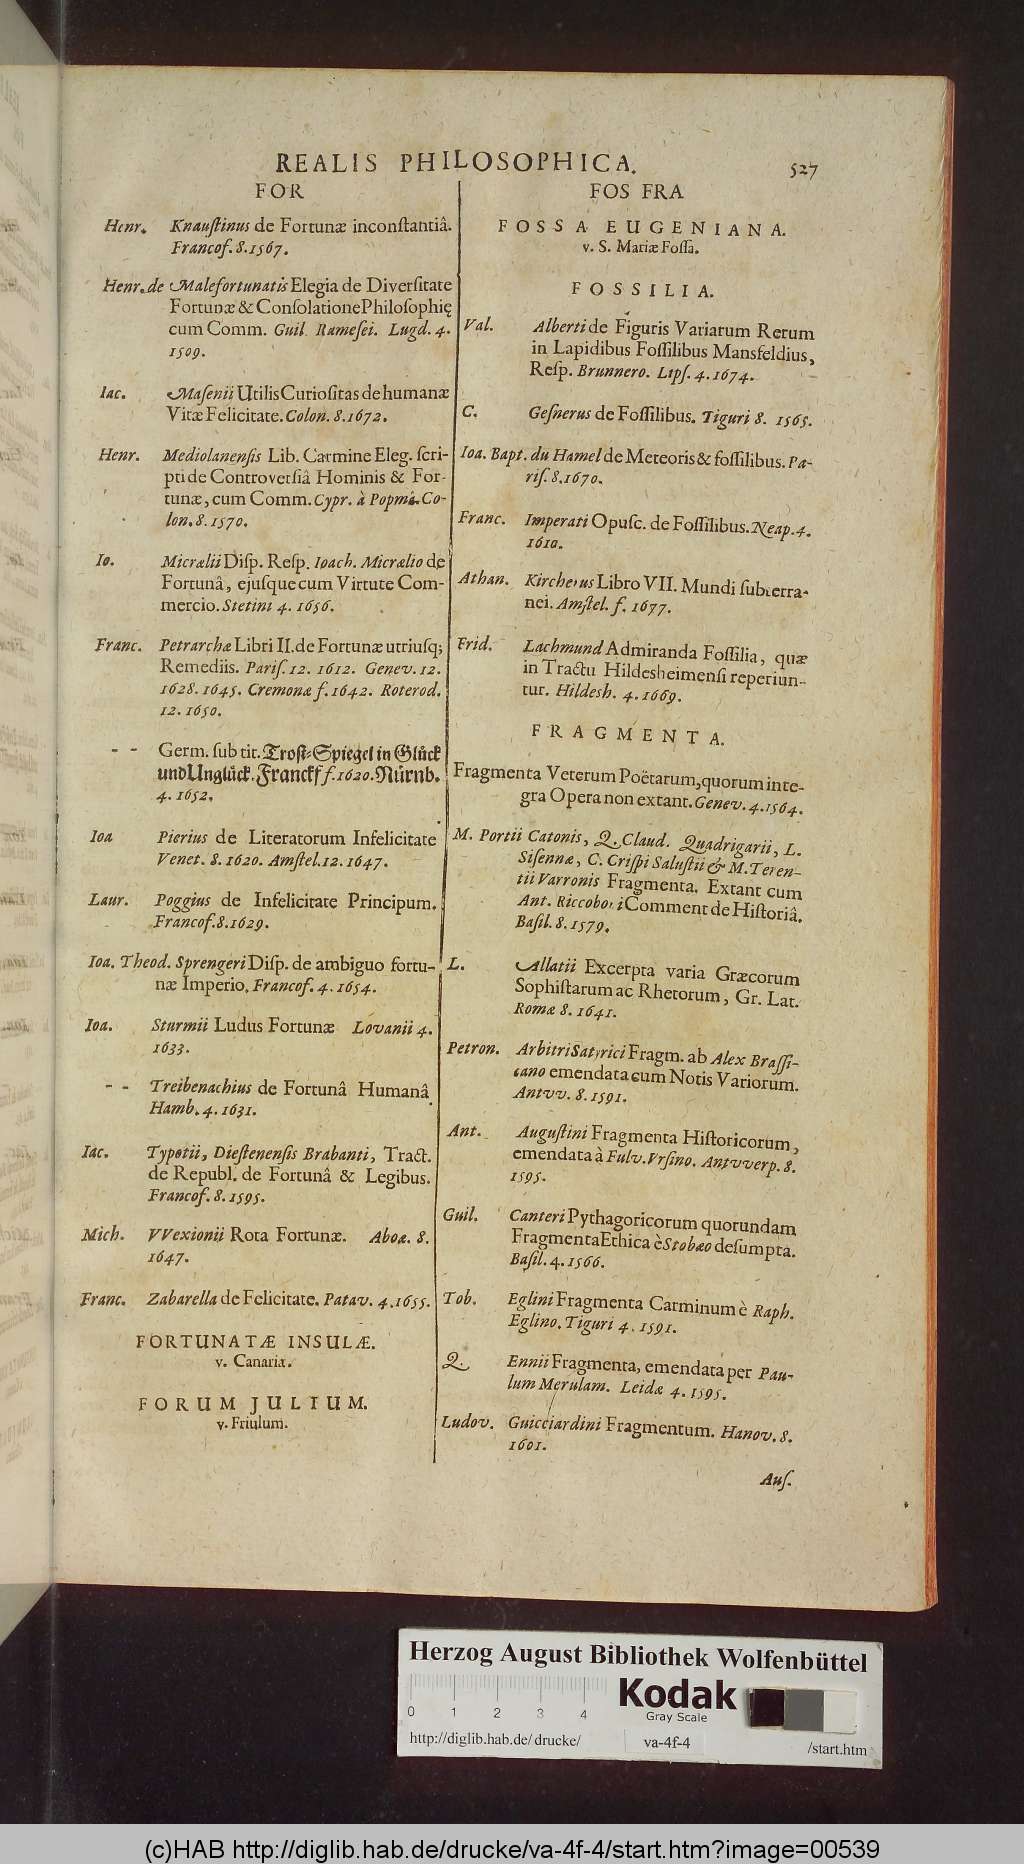 REALIS PHILOSOPHICA.
527
FOR
Henr. Knauſtinus de Fortunæ inconſtantiâ.
Francof. 8. 1567.
Henr. de Malefortunatis Elegia de Diverſitate
Fortunæ & Conſolatione Philoſophię
cum Comm. Guil. Rameſei. Lugd. 4.
1509.
Iac. Maſenii Utilis Curioſitas de humanæ
Vitæ Felicitate. Colon. 8. 1672.
Henr. Mediolanenſis Lib. Carmine Eleg. ſcri-
pti de Controverſiâ Hominis & For-
tunæ, cum Comm. Cypr. à Popmâ. Co-
lon. 8. 1570.
Io. Micrælii Diſp. Reſp. Ioach. Micrælio de
Fortunâ, ejuſque cum Virtute Com-
mercio. Stetini 4. 1656.
Franc. Petrarchæ Libri II. de Fortunæ utriuſq;
Remediis. Pariſ. 12. 1612. Genev. 12.
1628. 1645. Cremonæ f. 1642. Roterod.
12. 1650.
- - Germ. ſub tit. Troſt-Spiegel in Glück
und Unglück. Franckf f. 1620. Nürnb.
4. 1652.
Ioa Pierius de Literatorum Infelicitate
Venet. 8. 1620. Amſtel. 12. 1647.
Laur. Poggius de Infelicitate Principum.
Francof. 8. 1629.
Ioa. Theod. Sprengeri Diſp. de ambiguo fortu-
næ Imperio. Francof. 4. 1654.
Ioa. Sturmii Ludus Fortunæ Lovanii 4.
1633.
- - Treibenachius de Fortunâ Humanâ
Hamb. 4. 1631.
Iac. Typotii, Dieſtenenſis Brabanti, Tract.
de Republ. de Fortunâ & Legibus.
Francof. 8. 1595.
Mich. VVexionii Rota Fortunæ. Aboæ. 8.
1647.
Franc. Zabarella de Felicitate. Patav. 4. 1655.
FORTUNATÆ INSULÆ.
v. Canariæ.
FORUM JULIUM.
v. Friulum.
FOS FRA
FOSSA EUGENIANA.
v. S. Mariæ Foſſa.
FOSSILIA.
Val. Alberti de Figuris Variarum Rerum
in Lapidibus Foſſilibus Mansfeldius,
Reſp. Brunnero. Lipſ. 4. 1674.
C. Geſnerus de Foſſilibus. Tiguri 8. 1565.
Ioa. Bapt. du Hamel de Meteoris & foſſilibus. Pa-
riſ. 8. 1670.
Franc. Imperati Opuſc. de Foſſilibus. Neap. 4.
1610.
Athan. Kircherus Libro VII. Mundi ſubterra-
nei. Amſtel. f. 1677.
Frid. Lachmund Admiranda Foſſilia, quæ
in Tractu Hildesheimenſi reperiun-
tur. Hildesh. 4. 1669.
FRAGMENTA.
Fragmenta Veterum Poëtarum, quorum inte-
gra Opera non extant. Genev. 4. 1564.
M. Portii Catonis, Q. Claud. Quadrigarii, L.
Siſennæ, C. Criſpi Saluſtii & M. Teren-
tii Varronis Fragmenta. Extant cum
Ant. Riccoboni Comment de Hiſtoriâ.
Baſil. 8. 1579.
L. Allatii Excerpta varia Græcorum
Sophiſtarum ac Rhetorum, Gr. Lat.
Romæ 8. 1641.
Petron. Arbitri Satyrici Fragm. ab Alex Braſſi-
cano emendata cum Notis Variorum.
Antvv. 8. 1591.
Ant. Auguſtini Fragmenta Hiſtoricorum,
emendata à Fulv. Vrſino. Antvverp. 8.
1595.
Guil. Canteri Pythagoricorum quorundam
Fragmenta Ethica è Stobæo deſumpta.
Baſil. 4. 1566.
Tob. Eglini Fragmenta Carminum è Raph.
Eglino. Tiguri 4. 1591.
Q. Ennii Fragmenta, emendata per Pau-
lum Merulam. Leidæ 4. 1595.
Ludov. Guicciardini Fragmentum. Hanov. 8.
1601.
Auſ.
Herzog August Bibliothek Wolfenbüttel
0 1 2 3 4
Kodak
Gray Scale
http://diglib.hab.de/drucke/ va-4f-4 /start.htm
(c)HAB http://diglib.hab.de/drucke/va-4f-4/start.htm?image=00539